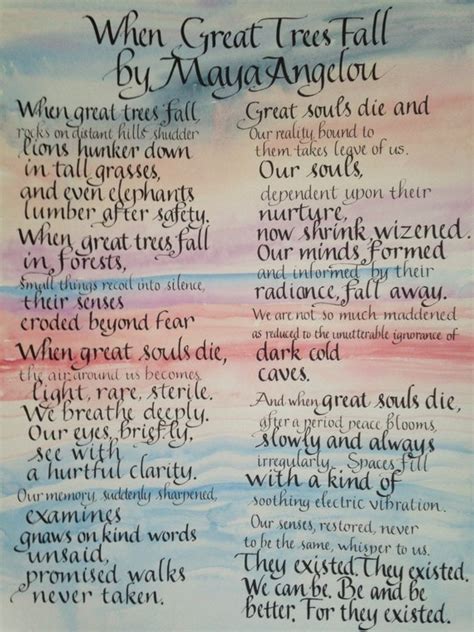 When Great Trees Fall
by Maya Angelou
When great trees fall,
rocks on distant hills shudder
lions hunker down
in tall grasses,
and even elephants
lumber after safety.
When great trees fall
in forests,
small things recoil into silence,
their senses
eroded beyond fear
When great souls die,
the air around us becomes
light, rare, sterile.
We breathe deeply.
Our eyes, briefly,
see with
a hurtful clarity.
Our memory, suddenly sharpened,
examines
gnaws on kind words
unsaid,
promised walks
never taken.
Great souls die and
Our reality, bound to
them takes leave of us.
Our souls,
dependent upon their
nurture,
now shrink wizened.
Our minds formed
and informed by their
radiance, fall away.
We are not so much maddened
as reduced to the unutterable ignorance of
dark cold
caves.
And when great souls die,
after a period peace blooms,
slowly and always
irregularly. Spaces fill
with a kind of
soothing electric vibration.
Our senses, restored, never
to be the same, whisper to us.
They existed. They existed.
We can be. Be and be
better. For they existed.